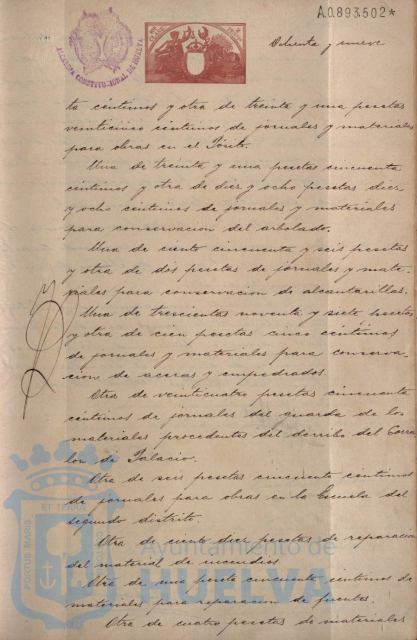 A.0.893.502*
ALCALDIA CONSTITUCIONAL DE HUELVA
Ochenta y nueve
ta céntimos y otra de treinta y una pesetas
veinticinco céntimos de jornales y materiales
para obras en el
Una de treinta y una pesetas cincuenta
céntimos y otra de diez y ocho pesetas diez
y ocho céntimos de jornales y materiales
para conservacion del arbolado.
Una de ciento cincuenta y seis pesetas
y otra de dos pesetas de jornales y mate-
riales para conservacion de alcantarillas.
Una de trescientas noventa y siete pesetas
y otra de cien pesetas cinco céntimos
de jornales y materiales para conserva-
cion de aceras y empedrados.
Otra de veinticuatro pesetas cincuenta
céntimos de jornales del guarda de los
materiales procedentes del derribo del Corra
lon de Palacio.
Otra de seis pesetas cincuenta céntimos
de jornales para obras en la Escuela del
segundo distrito.
Otra de ciento diez pesetas de reparacion
del material de incendios.
Otra de una peseta cincuenta céntimos de
materiales para reparacion de fuentes.
Otra de cuatro pesetas de materiales
PORTUS MARIS ET TERRAE
Ayuntamiento de
HUELVA